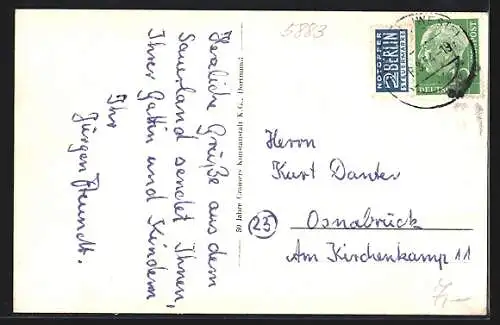 5883
Herzliche Grüße aus dem
Sauerland sendet Ihnen,
Ihrer Gattin und Kindern
Ihr
Jürgen
50 Jahre Cramers Kunstanstalt K.G., Dortmund
NOTOPFER
2 BERLIN
STEUERMARKE
POST
Herrn
Kurt Danter
23
Osnabrück
Am Kirchenkamp 11